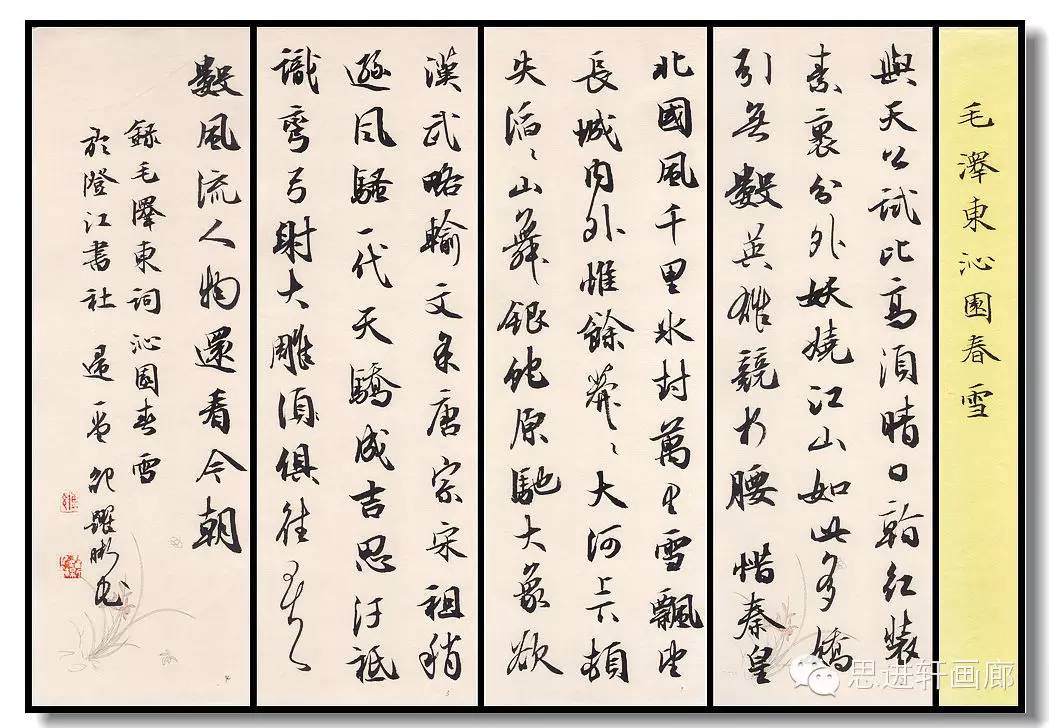 毛澤東沁園春雪
與天公試比高須晴日看红裝
素裹分外妖嬈江山如此多嬌
引無數英雄競折腰惜秦皇
北國風千里冰封萬里雪飄望
長城内外惟餘莽〻大河上下頓
失滔〻山舞銀蛇原馳大象欲
漢武略輸文采唐宗宋祖稍
遜風騷一代天驕成吉思汗祗
識彎弓射大雕須俱往矣
數風流人物還看今朝
錄毛澤東詞沁園春雪
於澄江書社 躍彬書
思进轩画廊